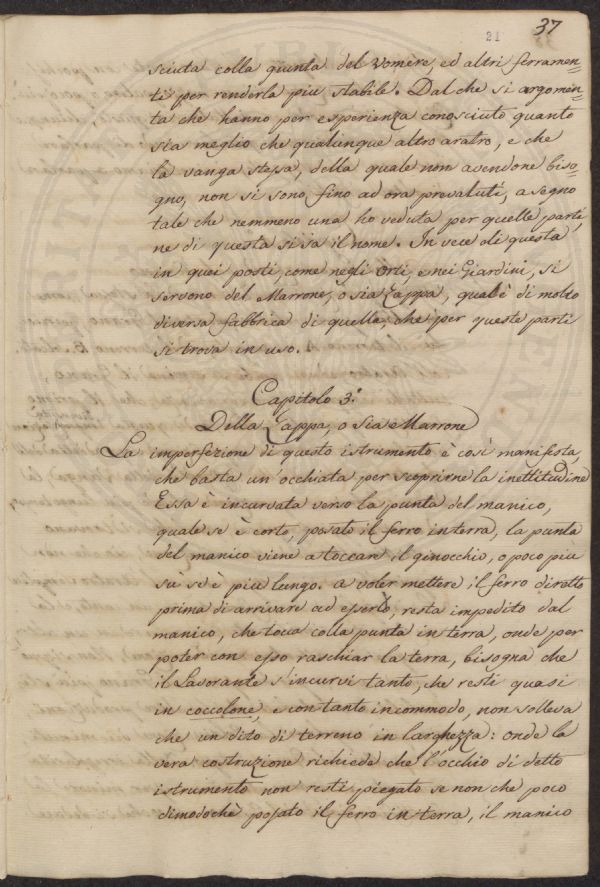 21 37
sciuta colla giunta del Vomere, ed altri ferramen-
ti per renderla più stabile. Dal che si argomen-
ta che hanno per esperienza conosciuto quanto
sia meglio che qualunque altro aratro, e che
la vanga stessa, della quale non avendone biso-
gno, non si sono fino ad ora prevaluti, a segno
tale che nemmeno una ho veduta per quelle parti,
ne di questa si sa il nome. In vece di questa
in quei posti, come negli Orti, e nei Giardini, si
servono del Marrone, o sia Zappa, qual'è di molto
diversa fabbrica di quella, che per queste parti
si trova in uso.
Capitolo 3.º
Della Zappa, o sia Marrone
La imperfezione di questo istrumento è così manifesta,
che basta un'occhiata per scoprirne la inettitudine
Essa è incurvata verso la punta del manico,
quale se è corto, posato il ferro in terra, la punta
del manico viene a toccare il ginocchio, o poco piu
sù se è piu lungo. a voler mettere il ferro diretto
prima di arrivare ad esserlo, resta impedito dal
manico, che tocca colla punta in terra, onde per
poter con esso raschiar la terra, bisogna che
il Lavorante s'incurvi tanto, che resti quasi
in coccolone, e con tanto incommodo, non solleva
che un dito di terreno in larghezza: onde la
vera costruzione richiede che l'occhio di detto
istrumento non resti piegato se non che poco
dimodoche posato il ferro in terra, il manico